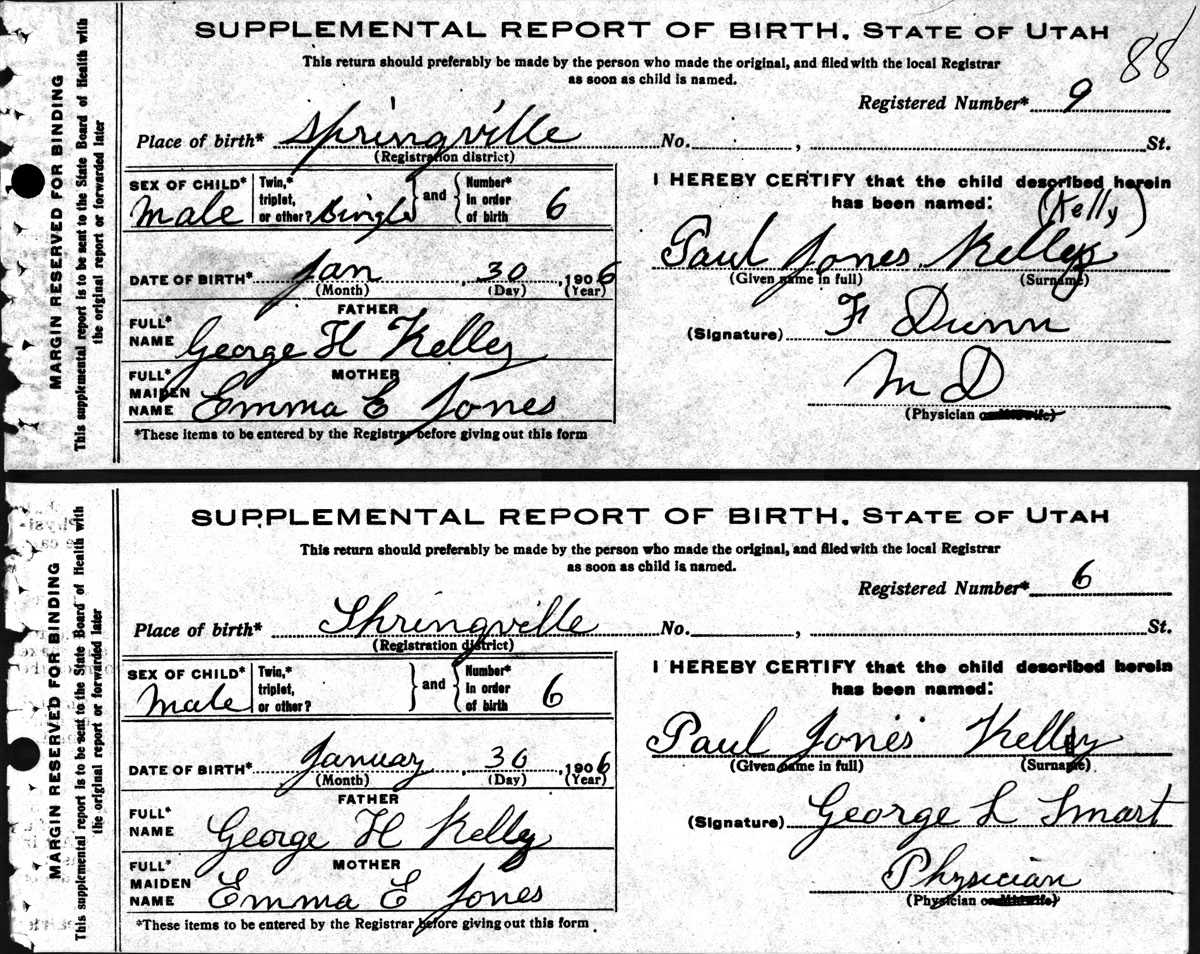 SUPPLEMENTAL REPORT OF BIRTH. STATE OF UTAH
88
This return should preferably be made by the person who made the original, and filed with the local Registrar
as soon as child is named.
Registered Number* 9
Place of birth* Springville No. , St.
(Registration district)
SEX OF CHILD* Male
Twin,* triplet, or other? Single } and { Number* in order of birth 6
DATE OF BIRTH* Jan , 30 , 1906
(Month) (Day) (Year)
FATHER
FULL* NAME George H Kelley
MOTHER
FULL* MAIDEN NAME Emma E Jones
*These items to be entered by the Registrar before giving out this form
I HEREBY CERTIFY that the child described herein
has been named: (Kelly)
Paul Jones Kelley
(Given name in full) (Surname)
(Signature) F Dunn
M D
(Physician or Midwife)
MARGIN RESERVED FOR BINDING
This supplemental report is to be sent to the State Board of Health with
the original report or forwarded later
SUPPLEMENTAL REPORT OF BIRTH. STATE OF UTAH
This return should preferably be made by the person who made the original, and filed with the local Registrar
as soon as child is named.
Registered Number* 6
Place of birth* Springville No. , St.
(Registration district)
SEX OF CHILD* Male
Twin,* triplet, or other? } and { Number* in order of birth 6
DATE OF BIRTH* January , 30 , 1906
(Month) (Day) (Year)
FATHER
FULL* NAME George H Kelly
MOTHER
FULL* MAIDEN NAME Emma E Jones
*These items to be entered by the Registrar before giving out this form
I HEREBY CERTIFY that the child described herein
has been named:
Paul Jones Kelly
(Given name in full) (Surname)
(Signature) George L Smart
Physician
(Physician or Midwife)
MARGIN RESERVED FOR BINDING
This supplemental report is to be sent to the State Board of Health with
the original report or forwarded later